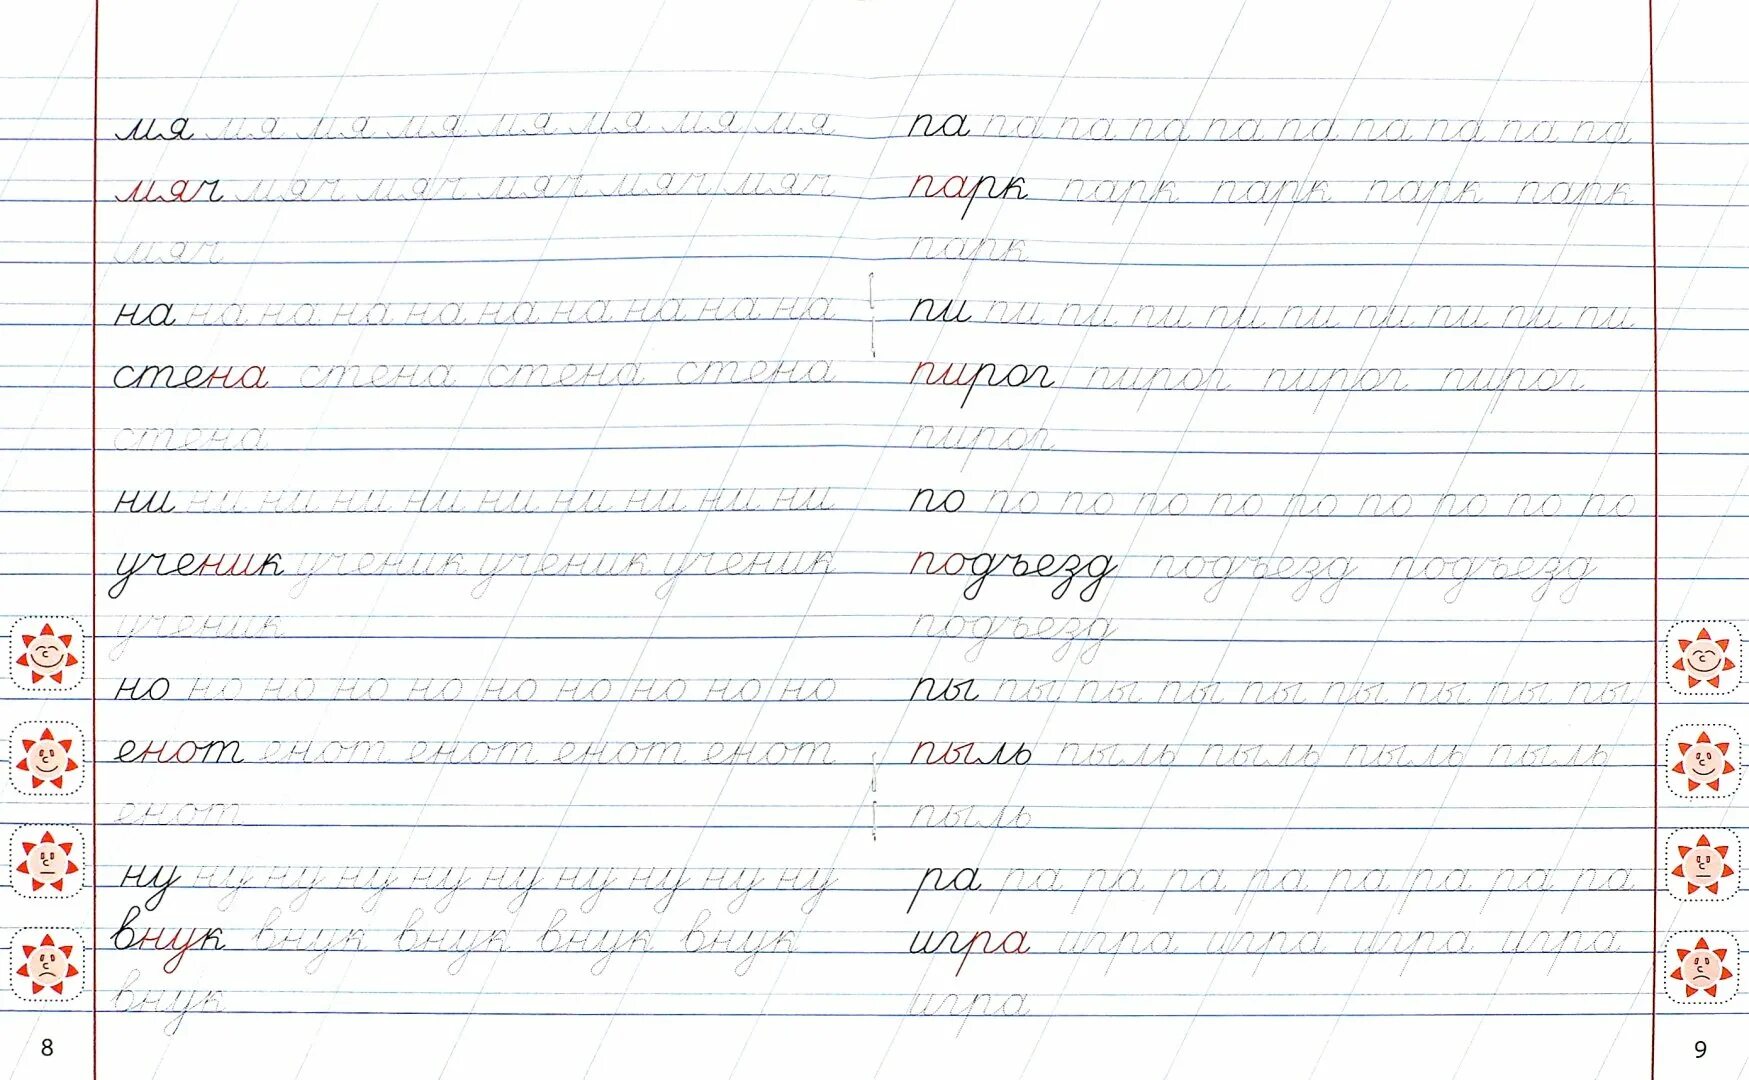 мя мя мя мя мя мя мя мя
мяч мяч мяч мяч мяч мяч
мяч
на на на на на на на на на на
стена стена стена стена
стена
ни ни ни ни ни ни ни ни ни ни
ученик ученик ученик ученик
ученик
но но но но но но но но но но
енот енот енот енот енот
енот
ну ну ну ну ну ну ну ну ну ну
внук внук внук внук внук
внук
8
па па па па па па па па па па
парк парк парк парк парк
парк
пи пи пи пи пи пи пи пи пи пи
пирог пирог пирог пирог
пирог
по по по по по по по по по по
подъезд подъезд подъезд
подъезд
пы пы пы пы пы пы пы пы пы
пыль пыль пыль пыль пыль
пыль
ра ра ра ра ра ра ра ра ра
игра игра игра игра игра
игра
9